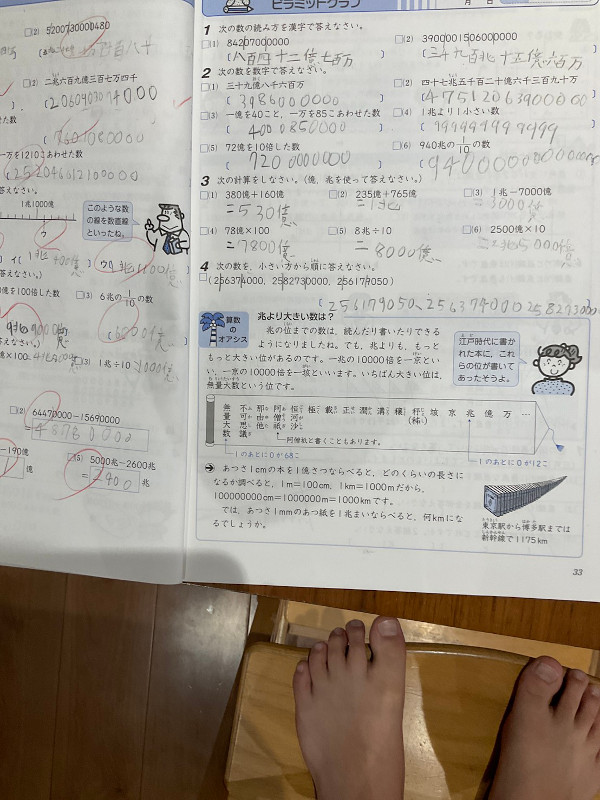 (2) 5200730000480
(2) 二兆六百九億三百七万四千
(2060903074000
した数
1万を1210こあわせた数
答えなさい。
1兆1000億
ウ
このような数
の線を数直線
といったね。
答えなさい。
を100倍した数
(3) 6兆の1/10の数
なさい。
億×100
(3) 1兆÷10
(2)
64470000-15690000
-190億
億
(5) 5000兆-2600兆
=2900 兆
ピラミッドクラブ
月 日
1 次の数の読み方を漢字で答えなさい。
(1) 84207000000
(2) 3900001506000000
(八百四十二億七百万
(三千九百兆十五億六百万
2 次の数を数字で答えなさい。
(1) 三十九億八千六百万
(2) 四十七兆五千百二十億六千三百九十万
(3986000000
(47512063900000
(3) 一億を40こと、一万を85こあわせた数
(4) 1兆より1小さい数
(4000850000
(999999999999
(5) 72億を10倍した数
(6) 940兆の1/10の数
(72000000000
3 次の計算をしなさい。(億、兆を使って答えなさい。)
(1) 380億+160億
(2) 235億+765億
(3) 1兆-7000億
=530億
=1兆
=3000億
(4) 78億×100
(5) 8兆÷10
(6) 2500億×10
=7800億
=8000億
=2兆5000億
4 次の数を、小さい方から順に答えなさい。
(256374000、2582730000、256179050)
(256179050、256374000、2582730000
算数
の
オアシス
兆より大きい数は?
兆の位までの数は、読んだり書いたりできる
ようになりましたね。でも、兆よりも、もっと
もっと大きい位があるのです。一兆の10000倍を一京とい
い、一京の10000倍を一垓といいます。いちばん大きい位は、
無量大数という位です。
江戸時代に書か
れた本に、これ
らの位が書いて
あったそうよ。
無量大数 不可思議 那由他 阿僧祇 恒河沙 極 載 正 澗 溝 穣 秄(秭) 垓 京 兆 億 万 …
阿僧祗と書くこともあります。
1のあとに0が68こ
1のあとに0が12こ
あつさ1cmの本を1億さつならべると、どのくらいの長さに
なるか調べると、1m=100cm、1km=1000mだから、
100000000cm=1000000m=1000kmです。
では、あつさ1mmのあつ紙を1兆まいならべると、何kmにな
るでしょうか。
東京駅から博多駅までは
新幹線で1175km
33